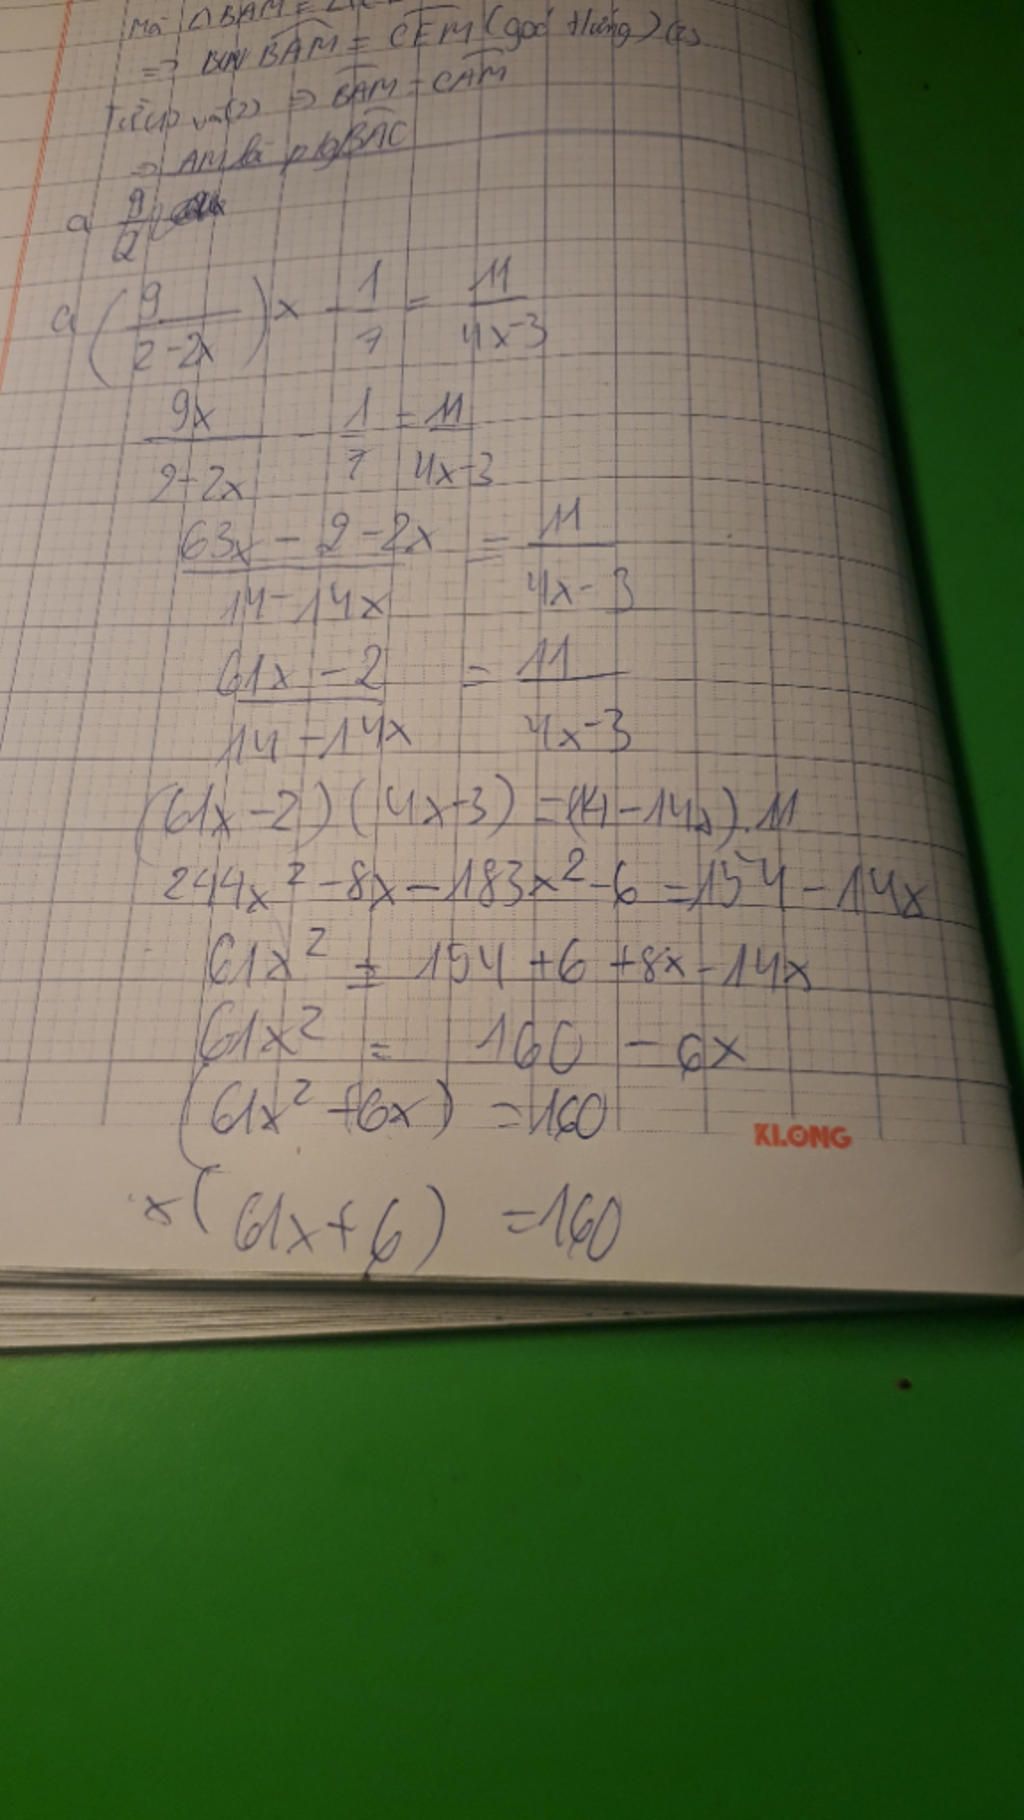 Mà ΔBAM = Δ
=> BAM = CEM (góc tương) (2)
Từ (1) và (2) => BAM = CAM
=> AM là p/g BAC
a 9/2
a (9/(2-2x)) x - 1/7 = 11/(4x-3)
9x/(2-2x) - 1/7 = 11/(4x-3)
(63x - 2 - 2x)/(14-14x) = 11/(4x-3)
(61x - 2)/(14-14x) = 11/(4x-3)
(61x-2)(4x-3) = (14-14x).11
244x² - 8x - 183x² - 6 = 154 - 14x
61x² = 154 + 6 + 8x - 14x
61x² = 160 - 6x
(61x² + 6x) = 160
KLONG
x(61x+6) = 160